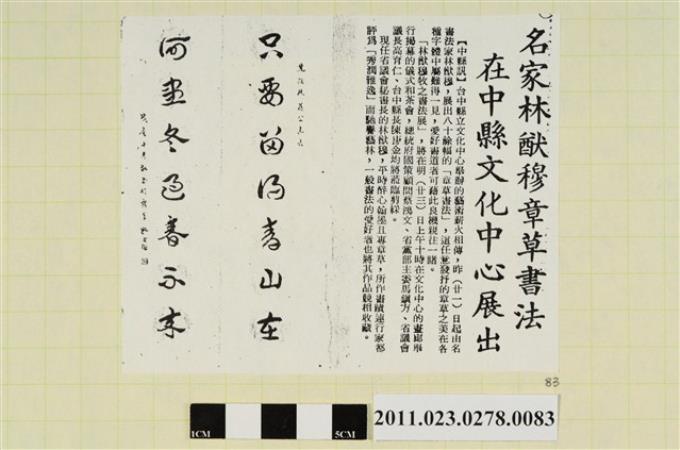 名家林猷穆章草書法
在中縣文化中心展出
【中縣訊】台中縣立文化中心舉辦的藝術薪火相傳，昨（廿一）日起由名
書法家林猷穆，展出八十餘幅的「章草書法」，這任意發抒的章草之美在各
種字體中屬難得一見，愛好書道者可藉此良機親往一睹。
「林猷穆牧之書法展」，將在明（廿三）日上午十時在文化中心的畫廊舉
行揭幕的儀式和茶會，總統府國策顧問蔡鴻文、省黨部主委馬鎮方、省議會
議長高育仁、台中縣長陳庚金均將蒞臨剪綵。
現任省議會秘書長的林猷穆，平時醉心翰墨且專章草，所作書蹟連行家都
評為「秀潤雅逸」而馳譽藝林，一般書法的愛好者也將其作品競相收藏。
只要留得青山在
何畫冬過春不來
83
1CM
5CM
2011.023.0278.0083